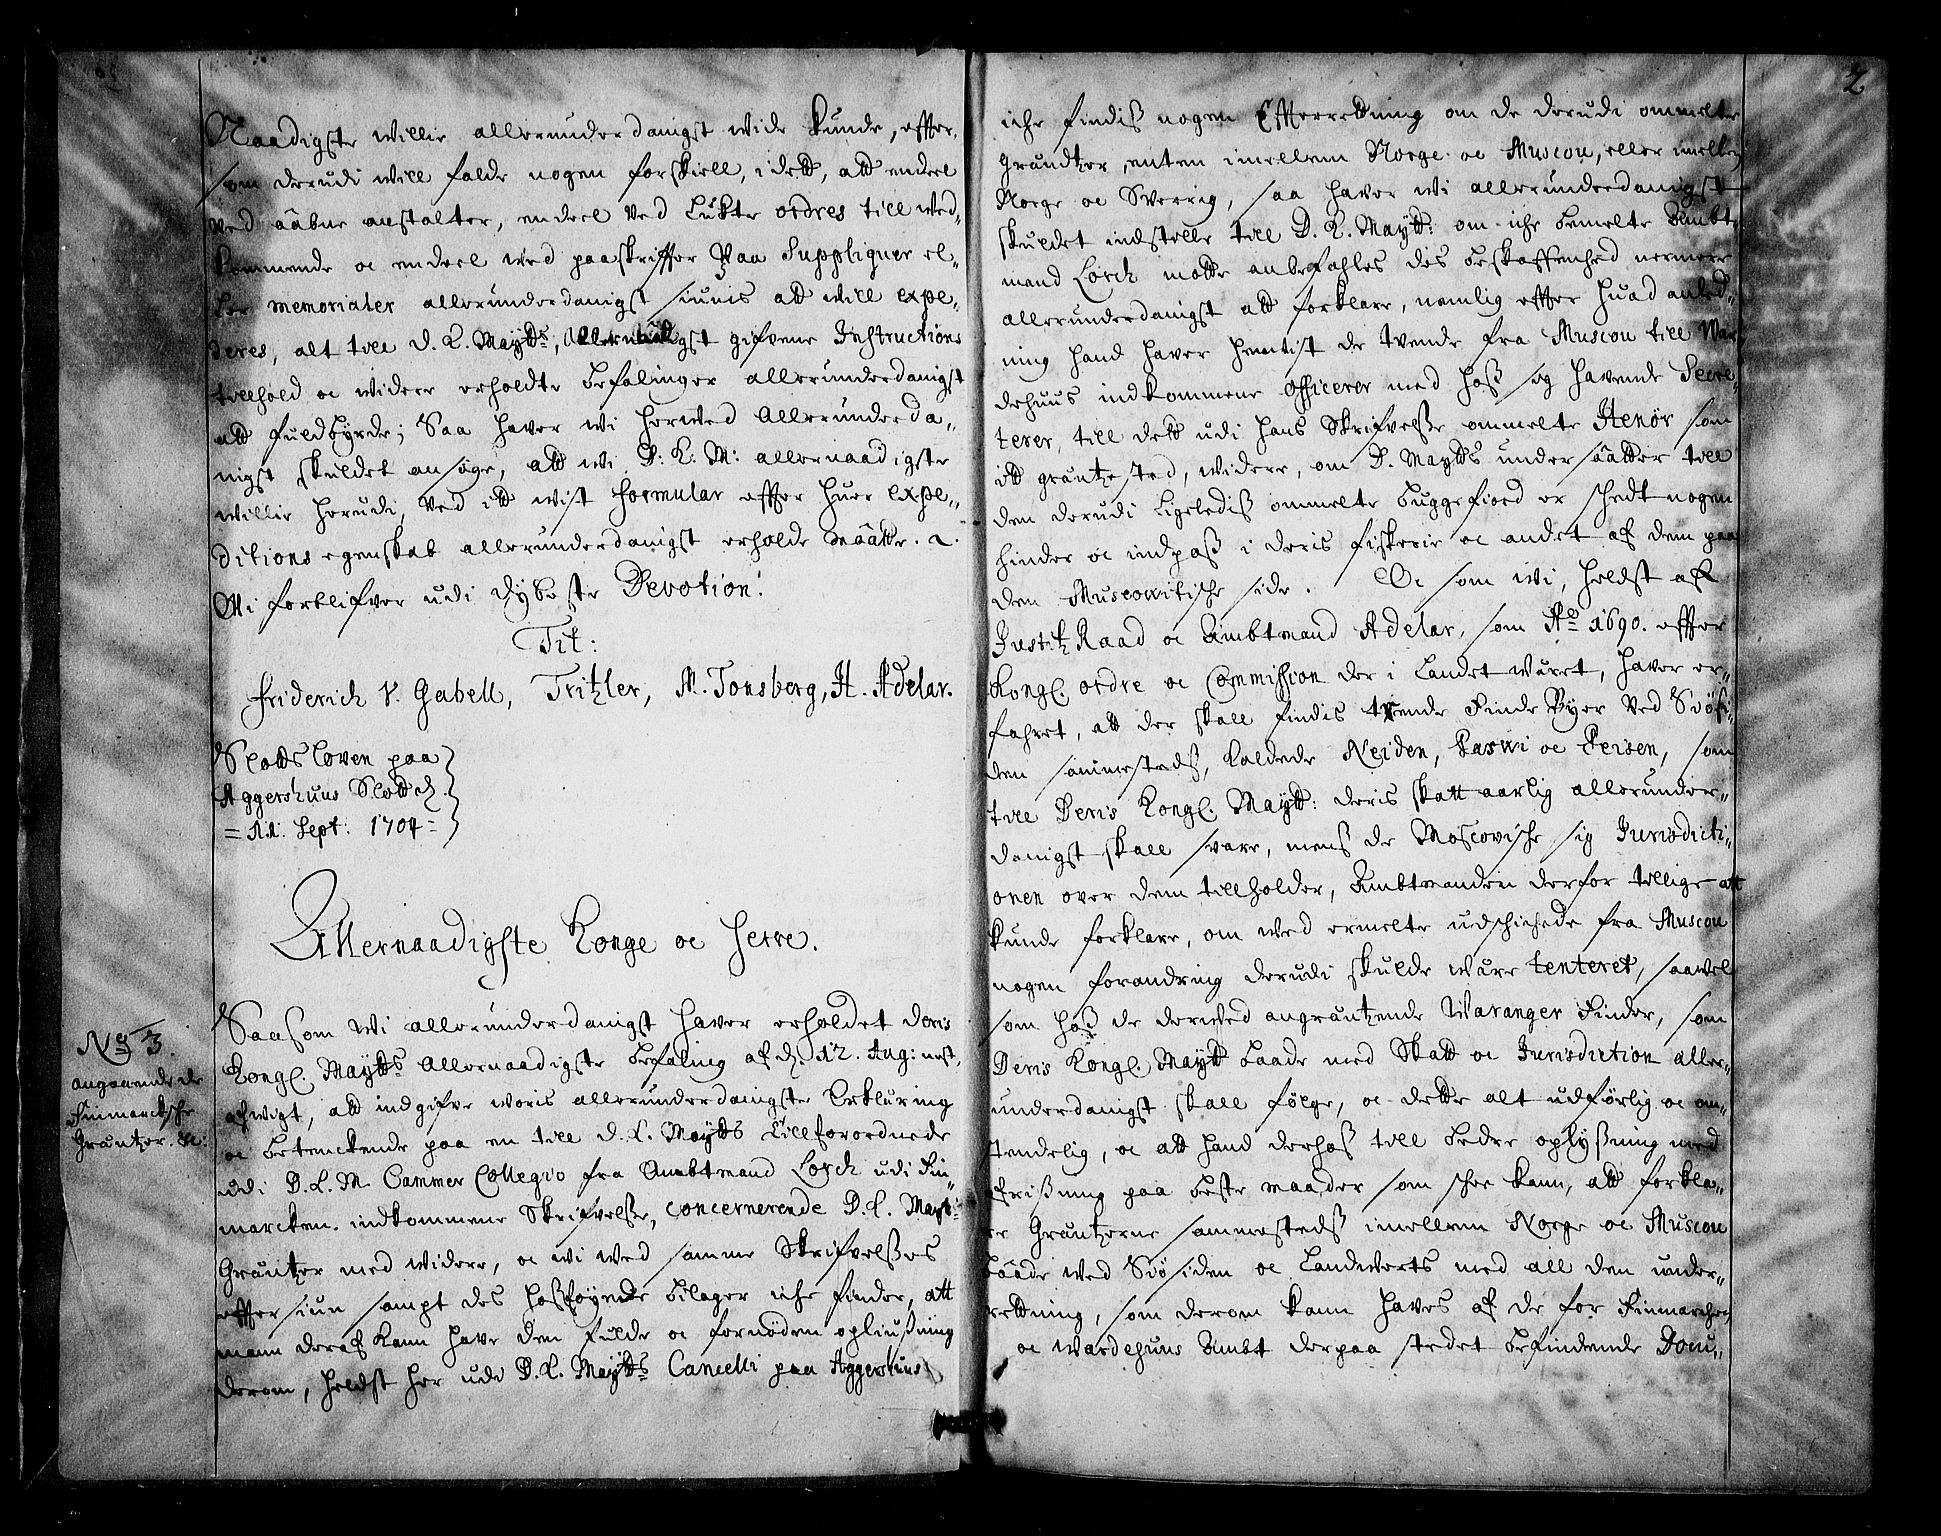 Naadigste willie allerunderdanigst wide kunde, effter,
som derudi will falde nogen forskiell, i dett, att endeel
ved aabne anstalter, endeel ved Lukte ordres till ved-
kommende oc endeel ved paaskriffter paa Suppliquer el-
ler memorialer allerunderdanigst siunis att will expe-
deres, alt till D. K. Maytts, Allernaadigst gifvene Instructions
tillhold oc widere erholdte befalinger allerunderdanigst
att fuldbyrde; Saa haver wi herved Allerunderda-
nigst skuldet ansøge, att wi D: K: M: allernaadigste
willie herudi, ved itt wist formular effter huer expe-
ditions egenskab allerunderdanigst erholde maatte.
Wi forblifver udi dybeste Devotion.
Tit:
Friderich V. Gabell, Tritzler, M. Tonsberg, H. Adelar.
Slotts Loven paa
Aggershuus Slott d.
= 11: Sept: 1704 =
Allernaadigste Konge oc Herre.
No 3.
angaaende de
Finmarckske
Gräntzer. &c:
Saasom wi allerunderdanigst haver erholdet deris
Kongl. Maytts Allernaadigste befaling af d. 12. Aug: nest
afvigt, att indgifve woris allerunderdanigste Erklæring
oc betenckende paa en till D. K. Maytts Tillforordnede
udi D. K. M. Cammer Collegio fra Ambtmand Lorch udi Fin-
marcken indkommene Skrifvelsse, concernerende D. K. Maytts
Gräntzer med widere, oc wi ved samme Skrifvelsses
effter siun sampt des hosføyede bilager iche finder, att
mann deraf kann have den fulde oc fornøden opliussning
derom, helst her udi D. K. Maytts Cancelli paa Aggershuus
2
iche findis nogen Efterretning om de derudi ommelte
Gräntzer, enten imellem Norge oc Muscou, eller imellem
Norge oc Sverrig, saa haver wi allerunderdanigst
skuldet indstille till D. K. Maytt: om iche bemelte Ambt-
mand Lorch motte anbefahles des beskaffenhed nermere
allerunderdanigst att forklare, nemlig effter huad anled-
ning hand haver hentist de tvende fra Muscou till War-
dehuus indkommene Officerer med hoss sig havende Secre-
terer, till dett udi hans Skrifvelsse ommelte Stenør som
itt gräntzested, widere, om D. Maytts undersaatter till
den derudi Ligeledis ommelte Buggefiord er skedt nogen
hinder oc indpass i deris fiskerie oc andet af dem paa
den Muscowitische side. Oc som wi, helst af
Justitz Raad oc Ambtmand Adelar, som Ao 1690. effter
Kongl. ordre oc Commission der i Landet wäret, haver er-
fahret, att der skall findis tvende Finde Byer ved Siøsi-
den sammesteds, kaldede Neiden, Paswi oc Peisen, som
till Deris Kongl. Maytt: deris skatt aarlig allerunder-
danigst skall svare, mens de Moscovische sig Jurisdicti-
onen over dem tillholder, Ambtmanden derfor tillige att
kunde forklare, om ved ermelte udschichede fra Muscou
nogen forandring derudi skulde wäre tenteret, saavel
som hoss de derwed angräntzende Waranger Finder, som
Deris Kongl. Maytt baade med Skatt oc Jurisdiction aller-
underdanigst skall følge, oc dette alt udførlig oc om-
stendelig, oc att hand derhoss till bedre oplyssning med
afrissning paa beste maader som skee kann, att forkla-
re Gräntzerne sammesteds imellem Norge oc Muscou
baade ved Siøsiden oc Landverts med all den under-
rettning, som derom kann haves af de for Finmarchen
oc Wardehuus Ambt derpaa stedet befindende Docu-